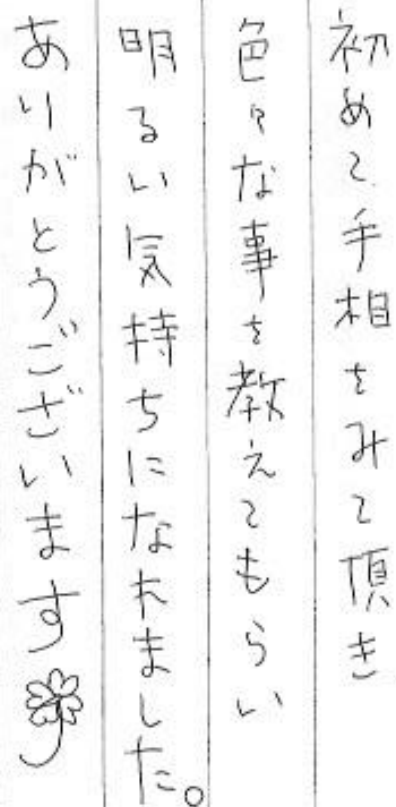 初めて手相をみて頂き
色々な事を教えてもらい
明るい気持ちになれました。
ありがとうございます